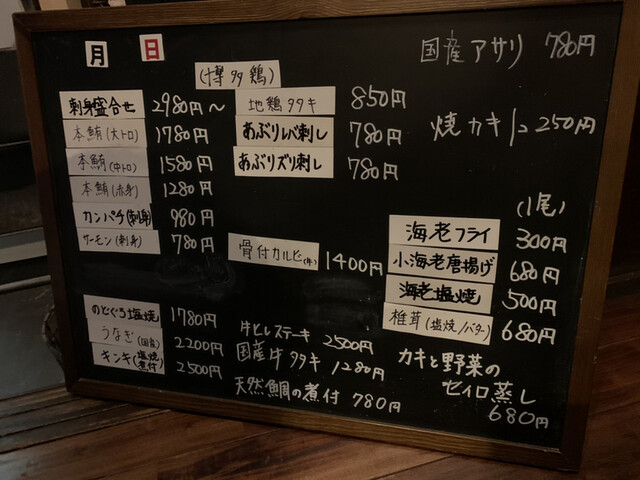 月 日
刺身盛合せ 2980円～
本鮪(大トロ) 1780円
本鮪(中トロ) 1580円
本鮪(赤身) 1280円
カンパチ(刺身) 980円
サーモン(刺身) 780円
のどぐろ塩焼 1780円
うなぎ(国産) 2200円
キンキ(塩焼 煮付) 2500円
(博多鶏)
地鶏タタキ 850円
あぶりレバ刺し 780円
あぶりズリ刺し 780円
骨付カルビ(牛) 1400円
牛ヒレステーキ 2500円
国産牛タタキ 1280円
天然鯛の煮付 780円
国産アサリ 780円
焼カキ 1コ 250円
(1尾)
海老フライ 300円
小海老唐揚げ 680円
海老塩焼 500円
椎茸(塩焼/バター) 680円
カキと野菜の
セイロ蒸し
680円